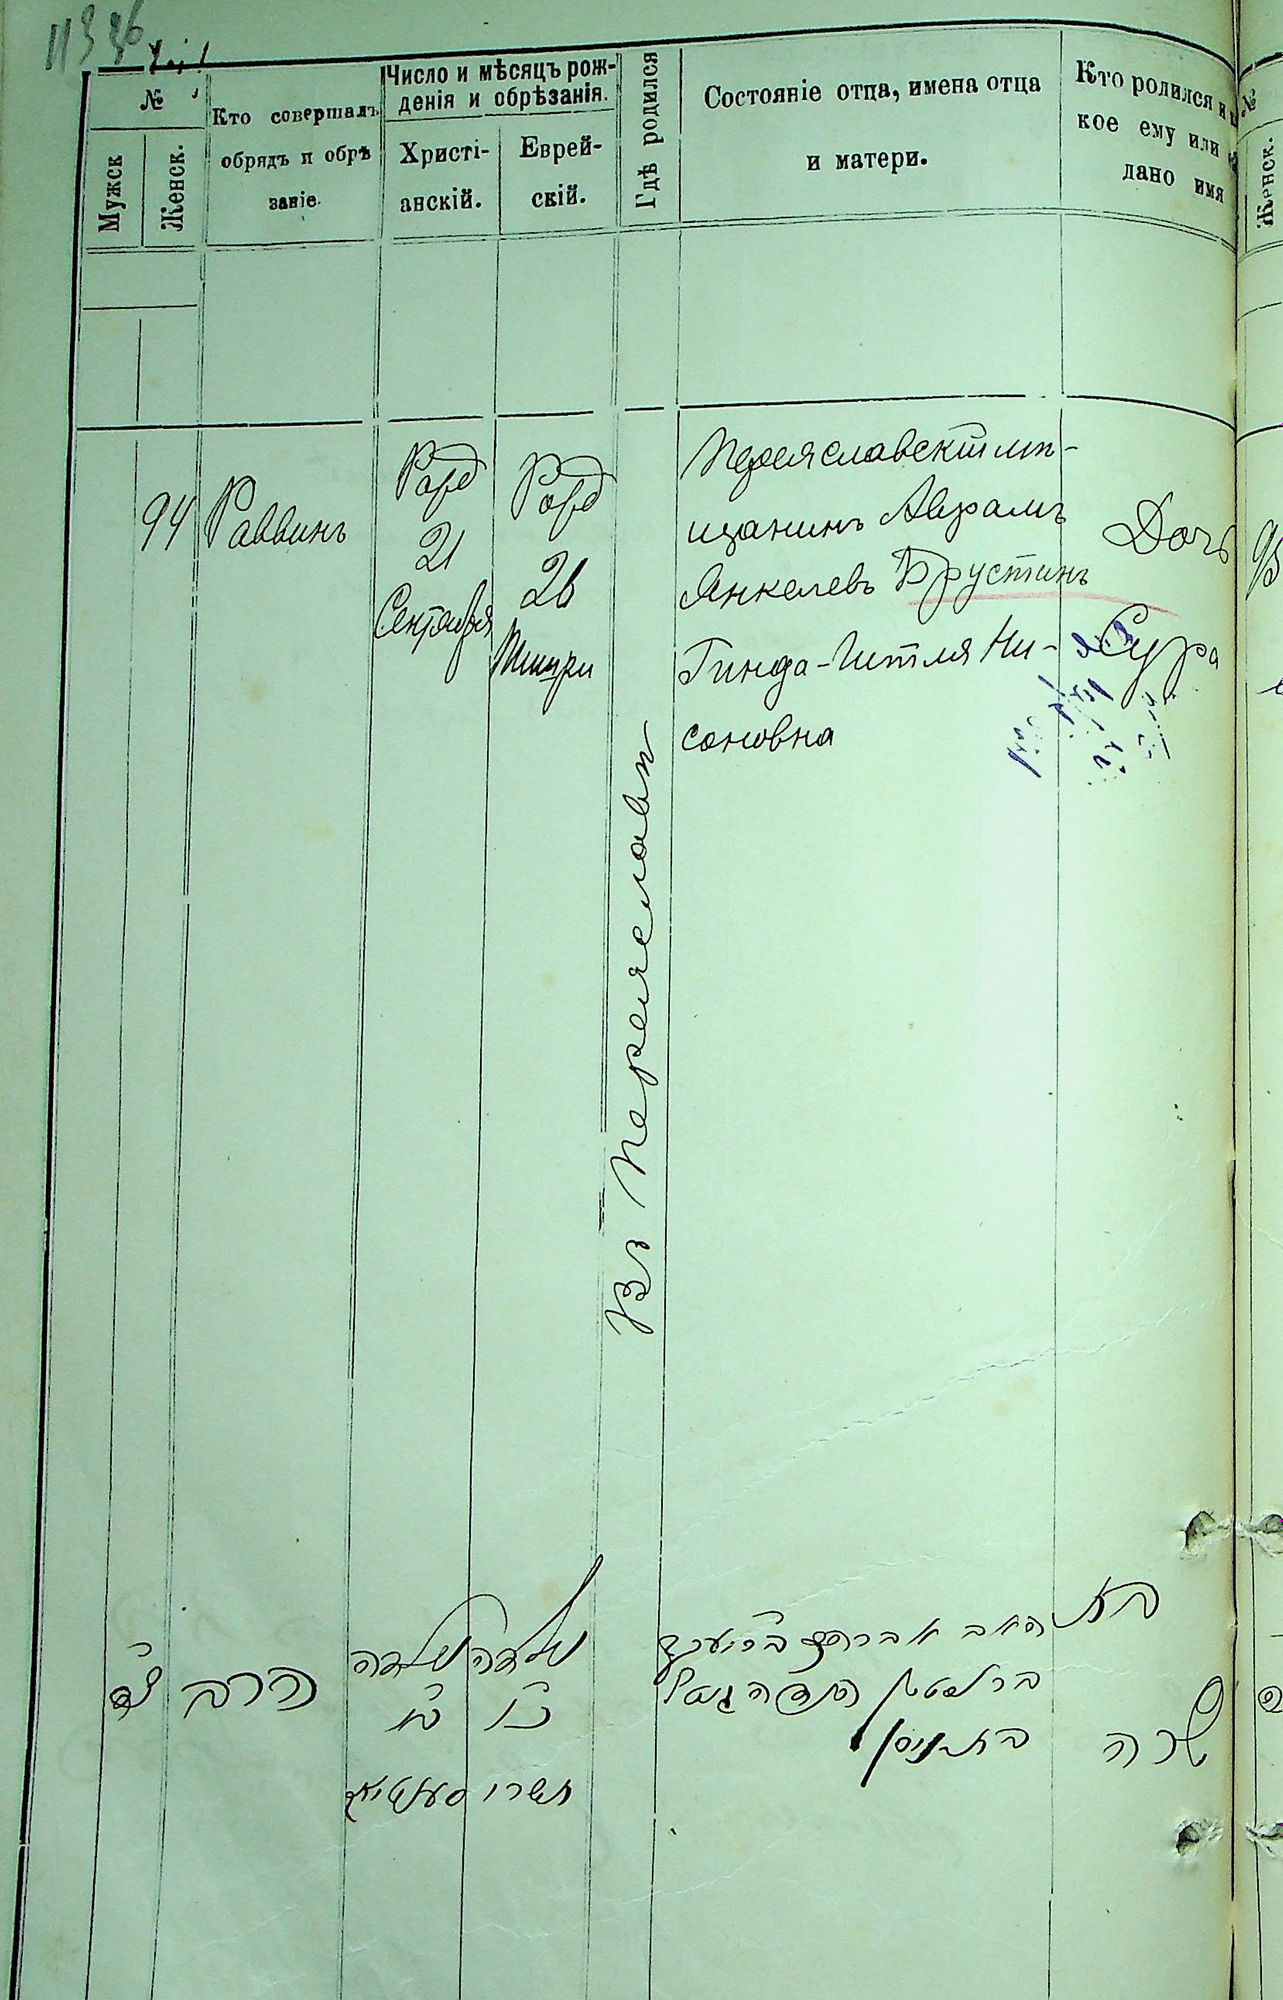 №
Мужск
Женск.
Кто совершалъ
обрядъ и обрѣ
заніе.
Число и мѣсяцъ рож-
денія и обрѣзанія.
Христі-
анскій.
Еврей-
скій.
Гдѣ родился
Состояніе отца, имена отца
и матери.
Кто родился и
кое ему или
дано имя
№
Женск.
94
Раввинъ
Рожд
21
Сентября
Рожд
26
Тишри
Въ Переяславѣ
Переяславскій мѣ-
щанинъ Аврамъ
Янкелевъ Брустинъ
Гинда-Гитля Ни-
соновна
Дочь
Сура
הרב
נולדה
נולדה
כ״ו
תשרי
האב אברהם
ברוסטין
בת ניסן
בת
שרה